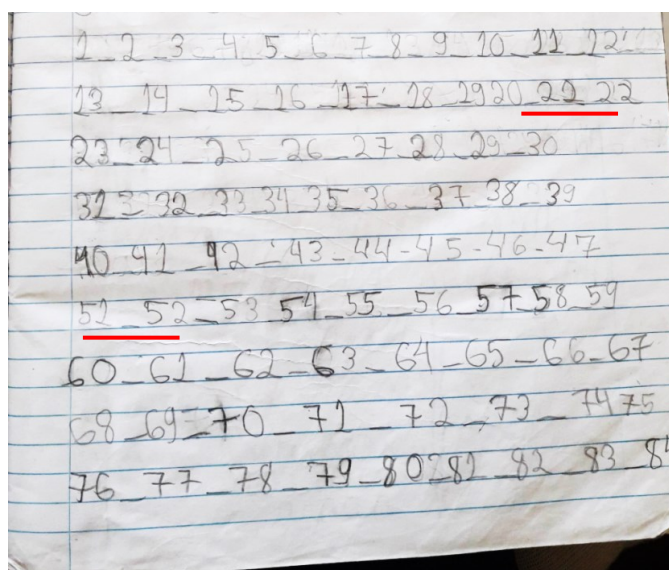 1_2_3_4_5_6_7_8_9_10_11_12
13_14_15_16_17_18_19 20_21_22
23_24_25_26_27_28_29_30
31_32_33_34_35_36_37_38_39
40_41_42_43_44-45-46-47
51_52_53 54_55_56_57_58_59
60_61_62_63_64_65_66_67
68_69_70_71_72_73_74 75
76_77_78_79_80_81_82_83_84